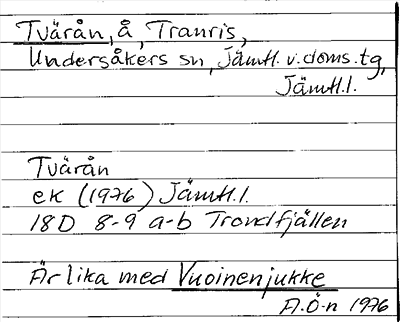 Tvärån, å, Tranris,
Undersåkers sn, Jämtl. v. doms. tg,
Jämtl.l.
Tvärån
ek (1976) Jämtl.l.
18D 8-9 a-b Trondfjällen
Är lika med Vuoinenjukke
A.Ö-n 1976